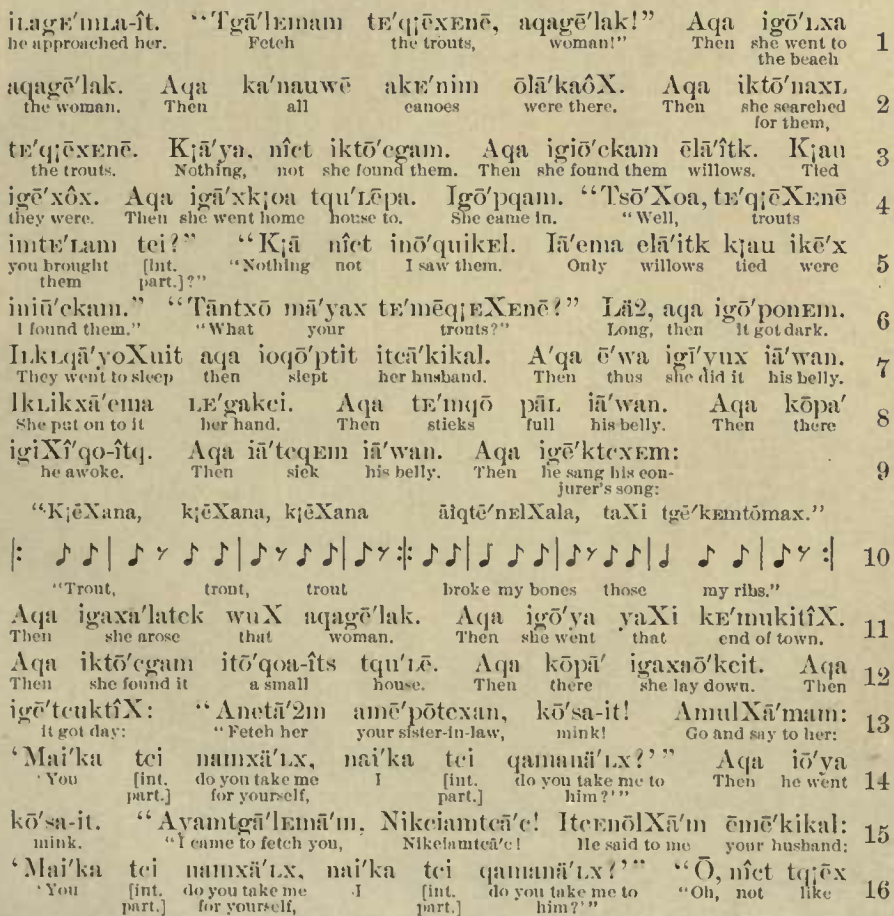 iʟagᴇ′mʟa-ît. “Tgā′lᴇmam tᴇ′q¡ēxᴇnē, aqagē′lak!” Aqa igō′ʟxa
he approached her. Fetch the trouts, woman!” Then she went to the beach 1
aqagē′lak. Aqa ka′nauwē akᴇ′nim ōlā′kaôX. Aqa iktō′naxʟ
the woman. Then all canoes were there. Then she searched for them, 2
tᴇ′q¡ēxᴇnē. K¡ā′ya, nîct iktō′cgam. Aqa igiō′ckam ēlā′îtk. K¡au
the trouts. Nothing, not she found them. Then she found them willows. Tied 3
igē′xôx. Aqa igā′xk¡oa tqu′ʟēpa. Igō′pqam. “Tsō′Xoa, tᴇ′q¡ēXᴇnē
they were. Then she went home house to. She came in. “Well, trouts 4
imtᴇ′ʟam tci?” “K¡ā nîct inō′quikᴇl. Iā′ema elā′itk k¡au ikē′x
you brought them [int. part.]?” “Nothing not I saw them. Only willows tied were 5
iniū′ckam.” “Tāntxō mā′yax tᴇ′mēq¡ᴇXᴇnē?” Lä2, aqa igō′ponᴇm.
I found them.” “What your trouts?” Long, then it got dark. 6
Iʟkʟqā′yoXuit aqa ioqō′ptit itcā′kikal. A′qa ē′wa igī′yux iā′wan.
They went to sleep then slept her husband. Then thus she did it his belly. 7
Ikʟikxā′ema ʟᴇ′gakci. Aqa tᴇ′mqō pāʟ iā′wan. Aqa kōpa′
She put on to it her hand. Then sticks full his belly. Then there 8
igiXî′qo-îtq. Aqa iā′tcqᴇm iā′wan. Aqa igē′ktcxᴇm:
he awoke. Then sick his belly. Then he sang his conjurer's song: 9
“K¡ēXana, k¡ēXana, k¡ēXana āiqtē′nᴇlXala, taXi tgē′kᴇmtōmax.”
10
“Trout, trout, trout broke my bones those my ribs.”
Aqa igaxa′latck wuX aqagē′lak. Aqa igō′ya yaXi kᴇ′mukitîX.
Then she arose that woman. Then she went that end of town. 11
Aqa iktō′cgam itō′qoa-îts tqu′ʟē. Aqa kōpā′ igaxaō′kcit. Aqa
Then she found it a small house. Then there she lay down. Then 12
igē′tcuktîX: “Anctā′2m amē′pōtcxan, kō′sa-it! AmulXā′mam:
it got day: “Fetch her your sister-in-law, mink! Go and say to her: 13
‘Mai′ka tci namxä′ʟx, nai′ka tci qamanä′ʟx?’” Aqa iō′ya
‘You [int. part.] do you take me for yourself, I [int. part.] do you take me to him?’” Then he went 14
kō′sa-it. “Ayamtgā′lᴇmā′m, Nikciamtcā′c! Itcᴇnōlxā′m ēmē′kikal:
mink. “I came to fetch you, Nikciamtcā′c! He said to me your husband: 15
‘Mai′ka tci namxä′ʟx, nai′ka tci qamanä′ʟx?’” “Ō, nîct tq¡ēx
‘You [int. part.] do you take me for yourself, I [int. part.] do you take me to him?’” “Oh, not like 16